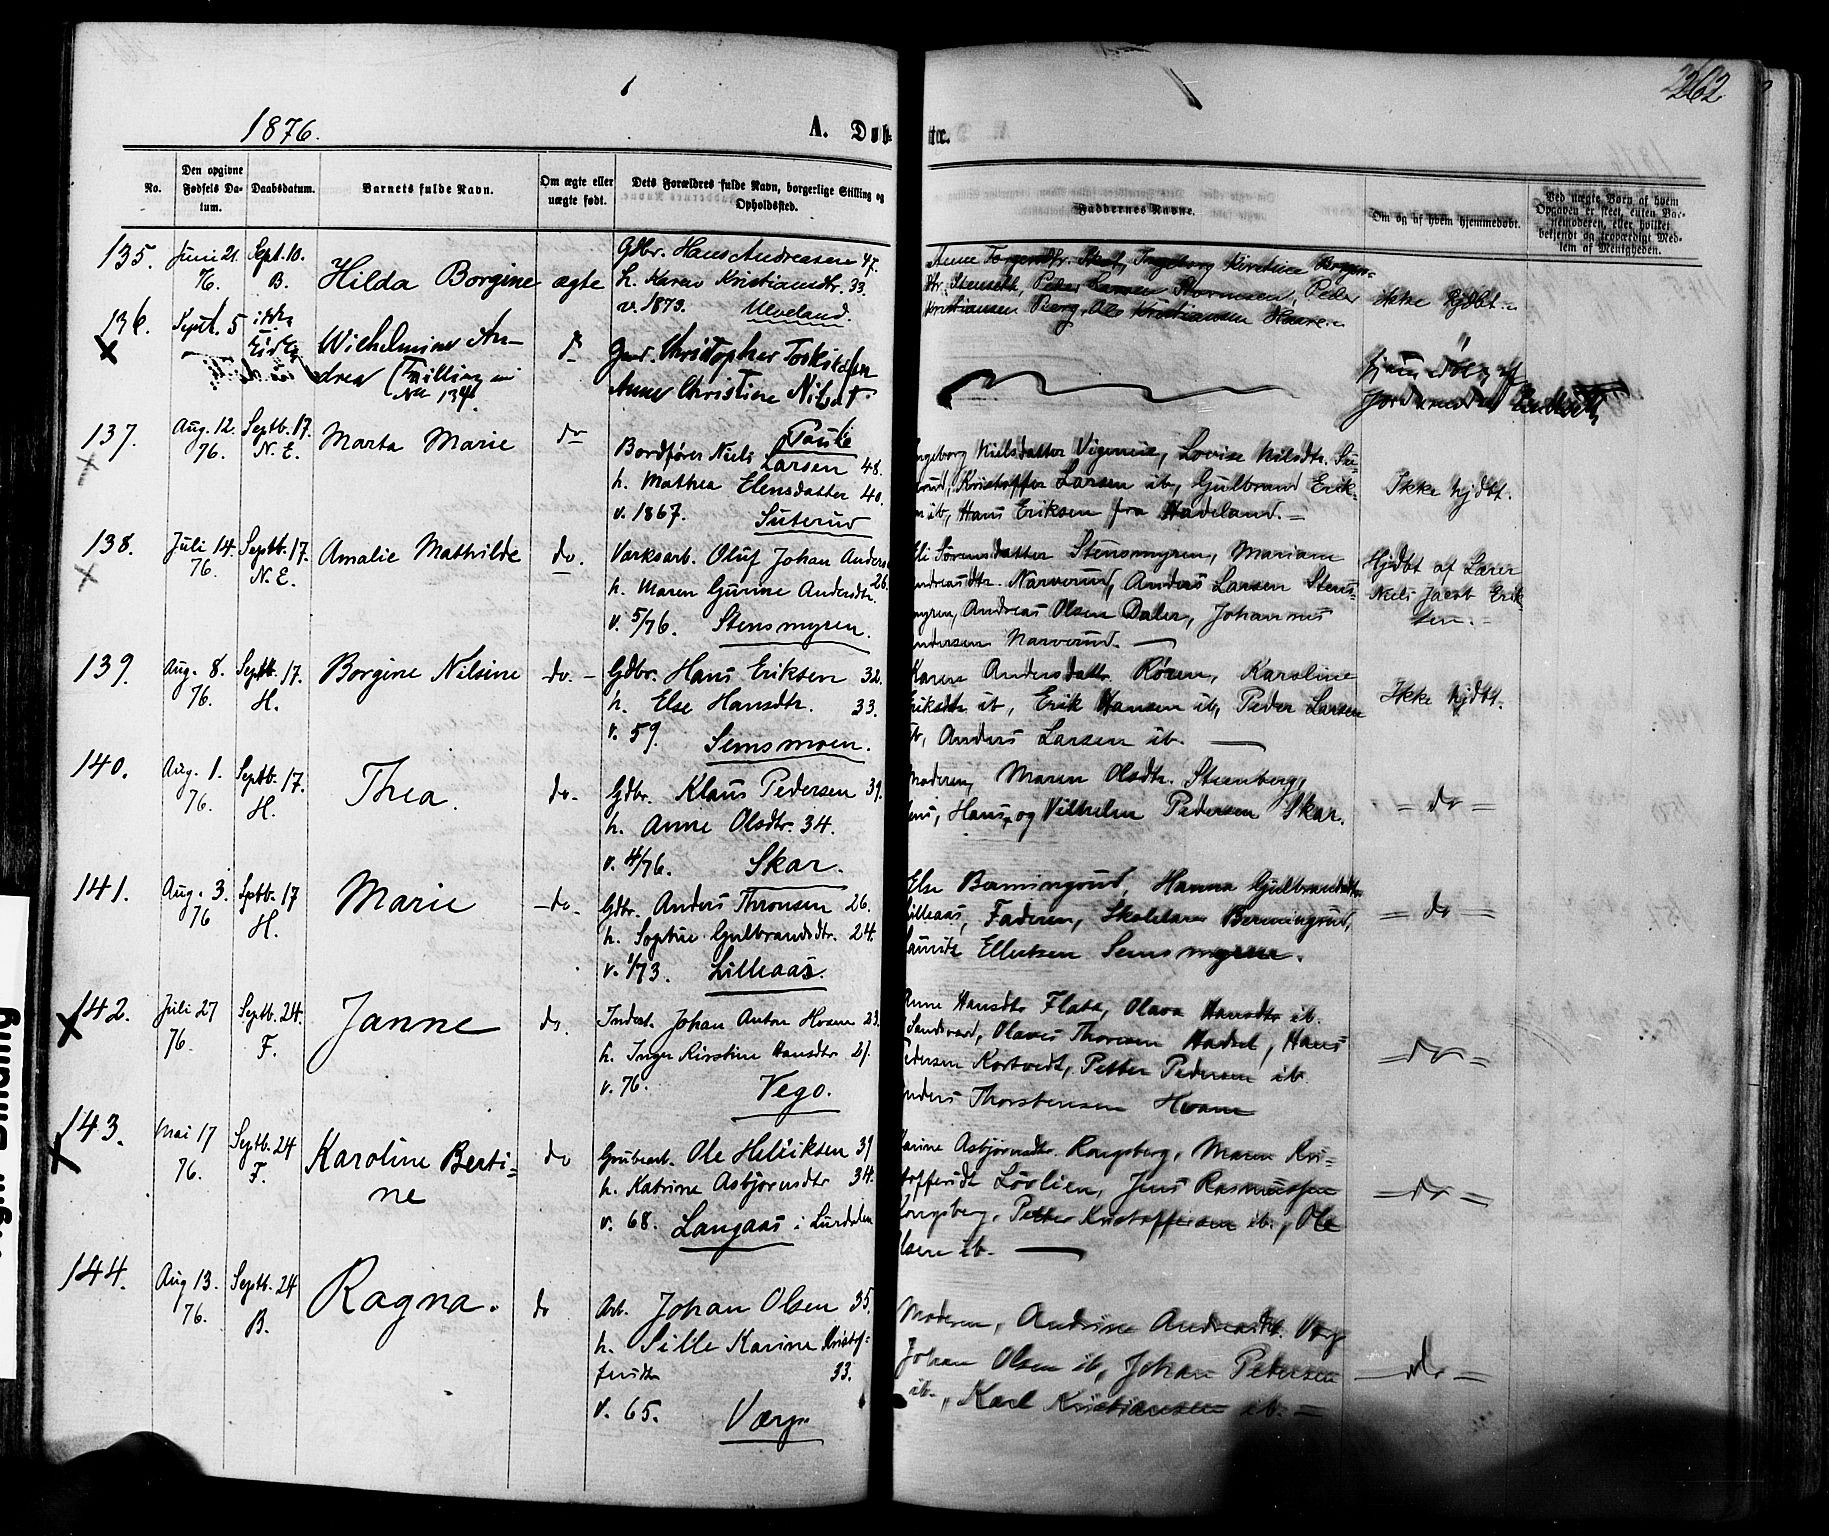 1876.
A. Døb-
te.
262
No.
Den opgivne Fødsels Da-
tum.
Daabsdatum.
Barnets fulde Navn.
Om ægte eller uægte født.
Dets Forældres fulde Navn, borgerlige Stilling og Opholdssted.
Faddernes Navne.
Om og af hvem hjemmedøbt.
Ved uægte Børn af hvem Opgaven er skeet, enten Bar-
nemoderen, eller hvilket bekjendt og troværdigt Med-
lem af Menigheden.
135.
Juni 21.
76.
Sept. 10.
B.
Hilda Borgine
ægte
Gdbr. Hans Andreasen 47.
h. Karen Kristiansdtr. 33.
v. 1873. Ulveland.
Peder
Kristiansen Berg, Ole Kristiansen
ikke hjdbt.
136.
Septb. 5
ikke
Wilhelmine An-
drea (Tvilling
No 134.
do
Christopher
Anne Christine
137.
Aug. 12.
76.
Septb. 17.
N. E.
Marta Marie
do
Bordfører Niels
Larsen 48.
h. Mathea Elensdatter 40.
v. 1867. Suterud
ngeborg Nielsdatter Lovise Nilsdtr. Su-
rud, Kristoffer Larsen ib, Gulbrand Erik-
n ib, Hans Eriksen fra Hadeland.
Ikke hjdbt.
138.
Juli 14.
76.
Septb. 17.
N. E.
Amalie Mathilde
do.
Værksarb. Oluf Johan Anders
26.
h. Maren Gurine Andersdtr.
v. 5/76. Stensmyren.
li Sørensdatter Stensmyren, Mariane
ndreasdtr. Narverud, Anders Larsen Stens-
myren, Andreas Olsen Daler, Johannes
ndersen Narverud.
Hjdbt af Lærer
Niels Jacob Erik
sen.
139.
Aug. 8.
76.
Septb. 17.
H.
Borgine Nilsine
do.
Gdbr. Hans Eriksen 32.
h. Else Hansdtr. 33.
v. 59. Semsmoen.
Karen Andersdatt. Røren, Karoline
Eriksdtr ib, Erik Hansen ib, Peder Larsen
ib, Anders Larsen ib.
Ikke hjdbt.
140.
Aug. 1.
76.
Septb. 17.
H.
Thea.
do.
Gdbr. Klaus Pedersen 39.
h. Anne Olsdtr. 34.
v. 4/76. Skar.
Moderen, Maren Olsdtr. Steenberg,
Hans, og Vilhelm Pedersen Skar.
do
141.
Aug. 3.
76
Sptb. 17
H.
Marie
do.
Gdbr. Anders Thronsen 26.
h. Sophie Gulbrandsdtr. 24.
v. 1/73. Lilleaas.
Else Hanna Gulbrandsdtr
Lilleaas, Faderen,
Ellertsen Semsmyren.
do
142.
Juli 27
76.
Septb. 24.
F.
Janne
do.
Inderst. Johan Anton Hvam 23.
h. Inger Kirstine Hansdtr 21.
v. 76. Vego.
Anne Hansdtr Flata, Olava Hansdtr ib.
Olaves Thoresen Hans
Pedersen Kortvedt, Petter Pedersen ib
nders Thorstensen Hvam
do
143.
Mai 17
76.
Septb. 24
F.
Karoline Berti-
ne
do
Grubearb. Ole Helliksen 39
h. Katrine Asbjørnsdtr 34.
v. 68. Langaas i Lurdalen
Karine Asbjørnsdtr Kongsberg, Maren Kri-
stoffersdt Løvlien, Jens Rasmussen
Kongsberg, Petter Kristoffersen ib., Ole
lsen ib.
do
144.
Aug 13.
76.
Septb. 24
B.
Ragna.
do
Arb. Johan Olsen 35.
h. Sille Karine Kristof-
fersdtr 33.
v. 65. Værp
Moderen, Andrine Andreasdt. Værp
Johan Olsen ib, Johan Petersen
ib., Karl Kristiansen ib.
do